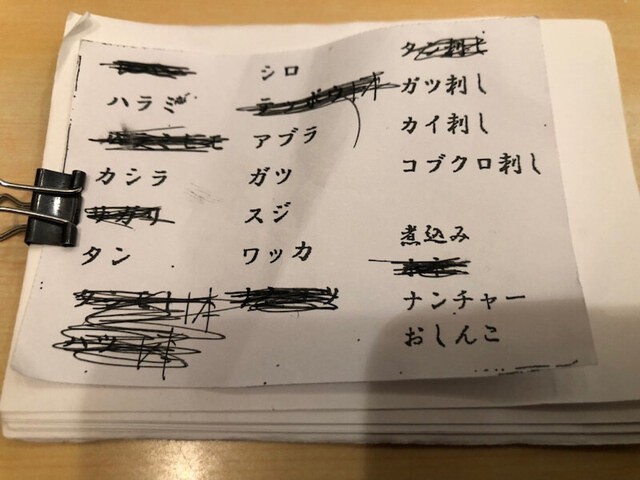 ハラミ
カシラ
サガリ
タン
シロ
テッポウ
アブラ
ガツ
スジ
ワッカ
タン刺し
ガツ刺し
カイ刺し
コブクロ刺し
煮込み
ナンチャー
おしんこ